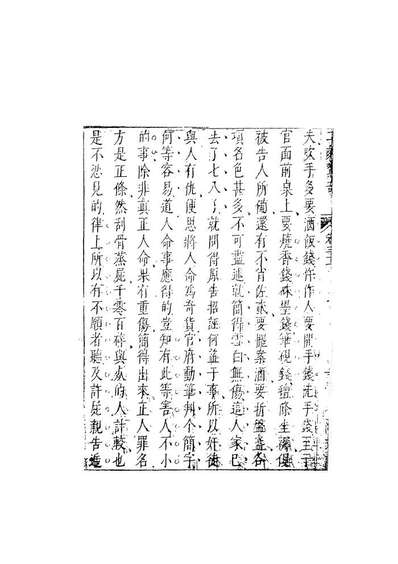 夫吹手多要酒飯錢仵作人要開手錢洗手錢至于
官面前桌上要燒香錢硃墨錢筆硯錢氊條坐褥俱
被告人所備還有不肖佐貳要擺案酒要折盤盞各
項名色甚多不可盡述就簡得雪白無傷這人家已
去了七八了就問得原告招誣何益于事所以奸徒
與人有仇便思將人命為奇貨官府動筆判个簡字
何等容易道人命事應得的豈知有此等害人不小
的事除非真正人命果有重傷簡得出來正人罪名
方是正條然刮骨蒸屍千零百碎與死的人計較也
是不忍見的律上所以有不願者聽及許屍親告遞